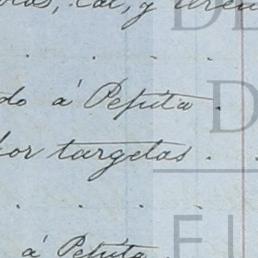 cal, y
do á Pepita .
por targetas . .
á Pepita